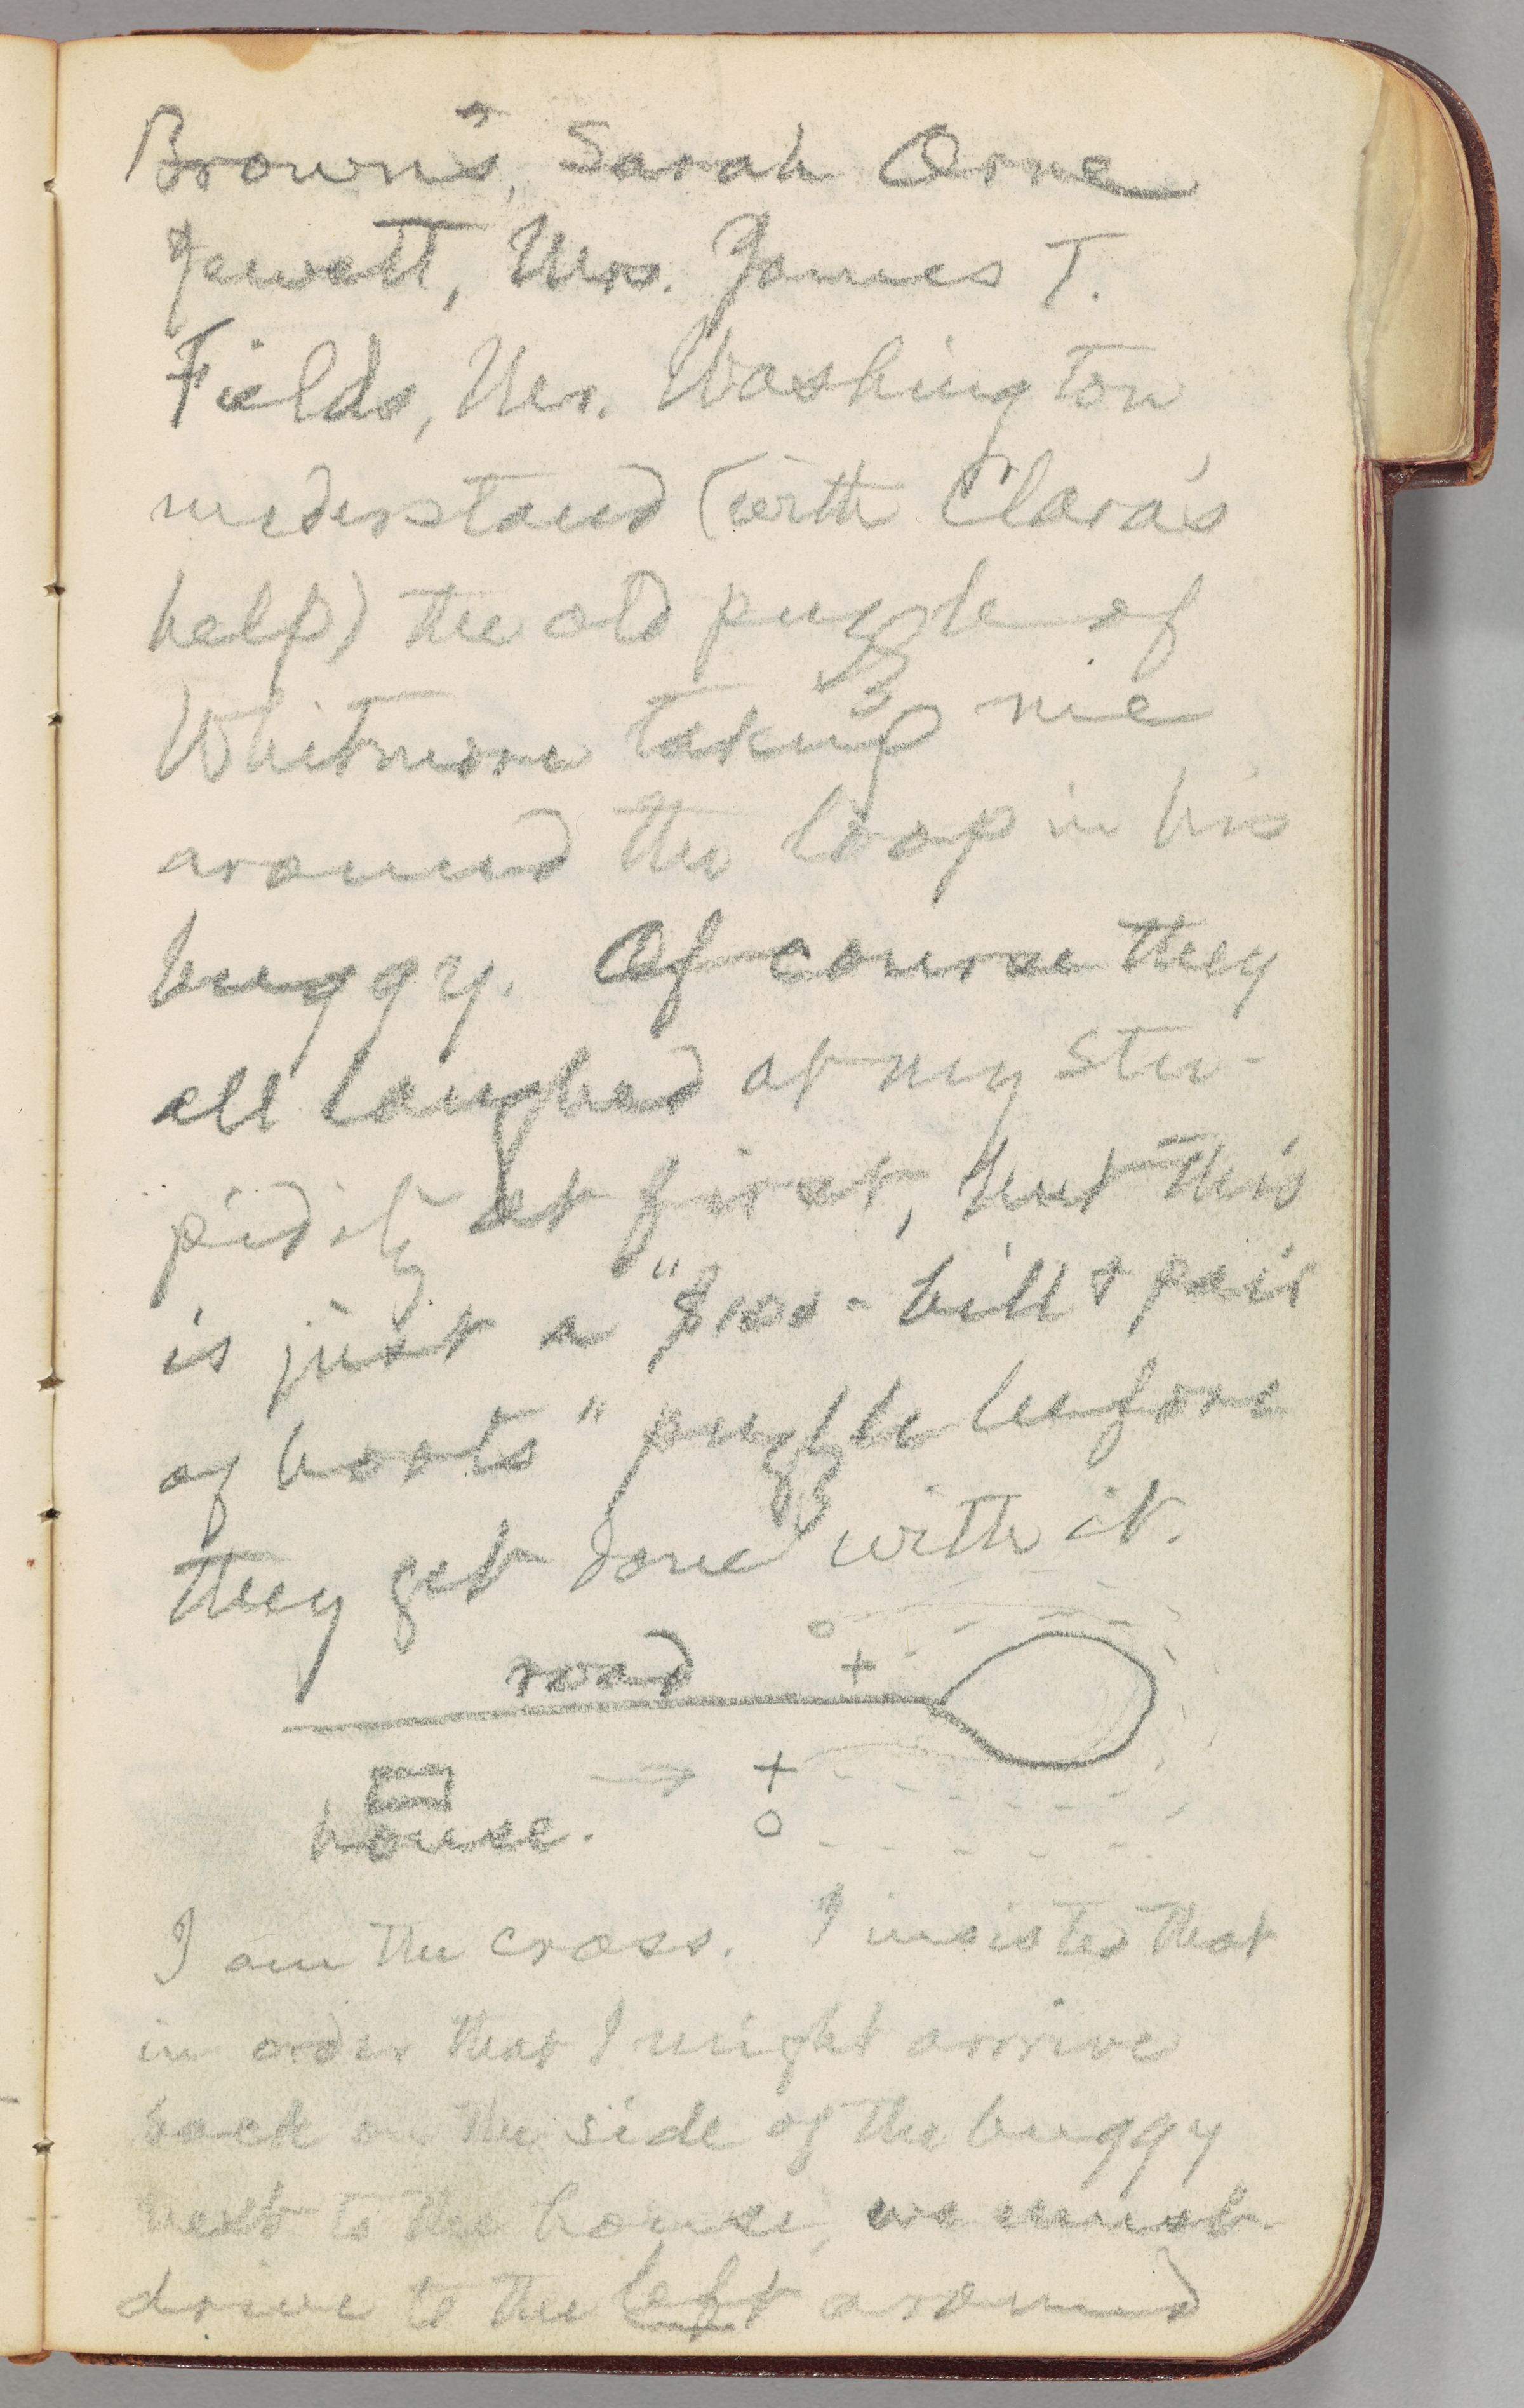 Brown's, Sarah Orne
Jewett, Mrs. James T.
Fields, Mr. Washington
understand (with Clara's
help) the old puzzle of
Whitmore taking me
around the loop in his
buggy. Of course they
all laughed at my stu-
pidity at first, but this
is just a "$100-bill & pair
of boots" puzzle before
they get done with it.
road
house.
I am the cross. I insisted that
in order that I might arrive
back on the side of the buggy
next to the house, we must
drive to the left around